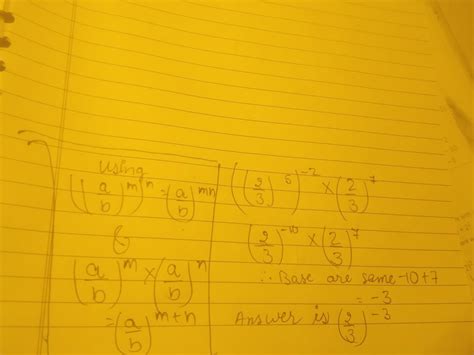 Using
((a/b)^m)^n = (a/b)^mn
&
(a/b)^m × (a/b)^n
= (a/b)^m+n
((2/3)^5)^-2 × (2/3)^7
(2/3)^-10 × (2/3)^7
∴ Base are same -10+7
= -3
Answer is (2/3)^-3